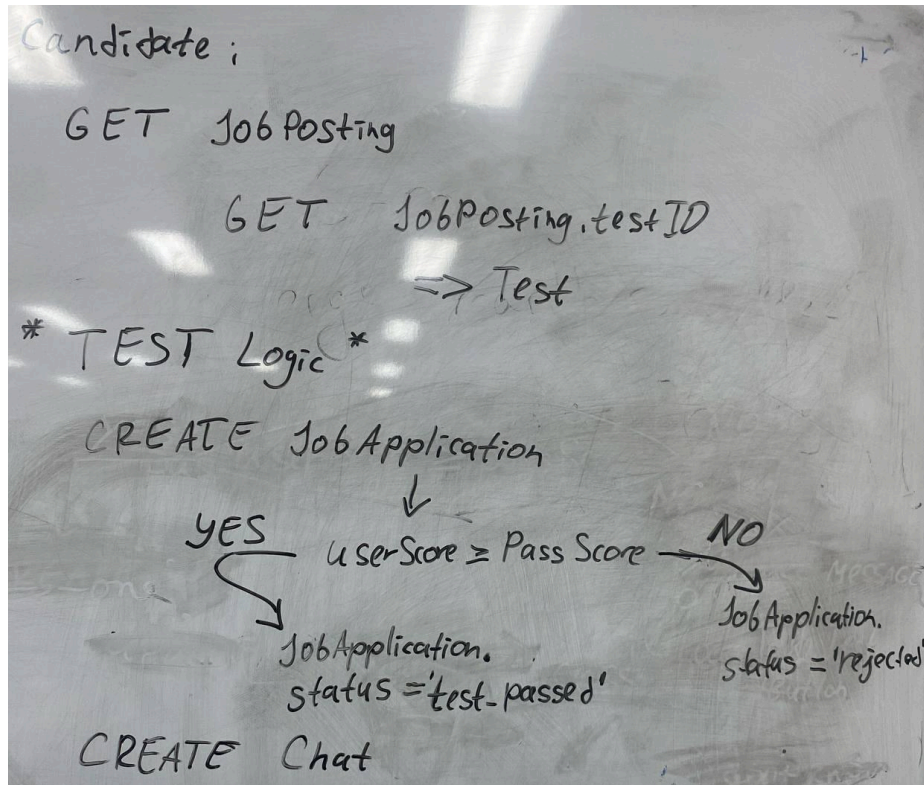 Candidate:
GET JobPosting
GET JobPosting.testID
=> Test
* TEST Logic *
CREATE JobApplication
↓
YES userScore ≥ PassScore NO
JobApplication.
status = 'rejected'
JobApplication.
status = 'test_passed'
CREATE Chat